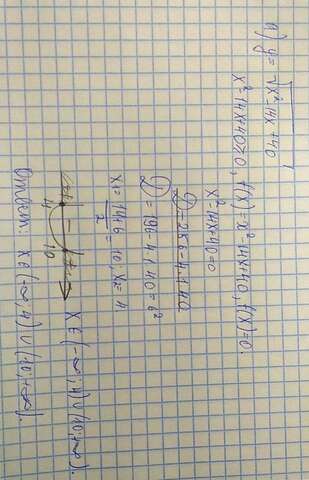 а) y = √x²-14x+40
x²-14x+40≥0, f(x)=x²-14x+40, f(x)=0.
x²-14x+40=0
D = 196-4·1·40=6²
x₁= 14+6 / 2 = 10, x₂= 4
+ 4 - 10 +
x∈(-∞,4)∪(10,+∞).
Ответ: x∈(-∞,4)∪(10,+∞).